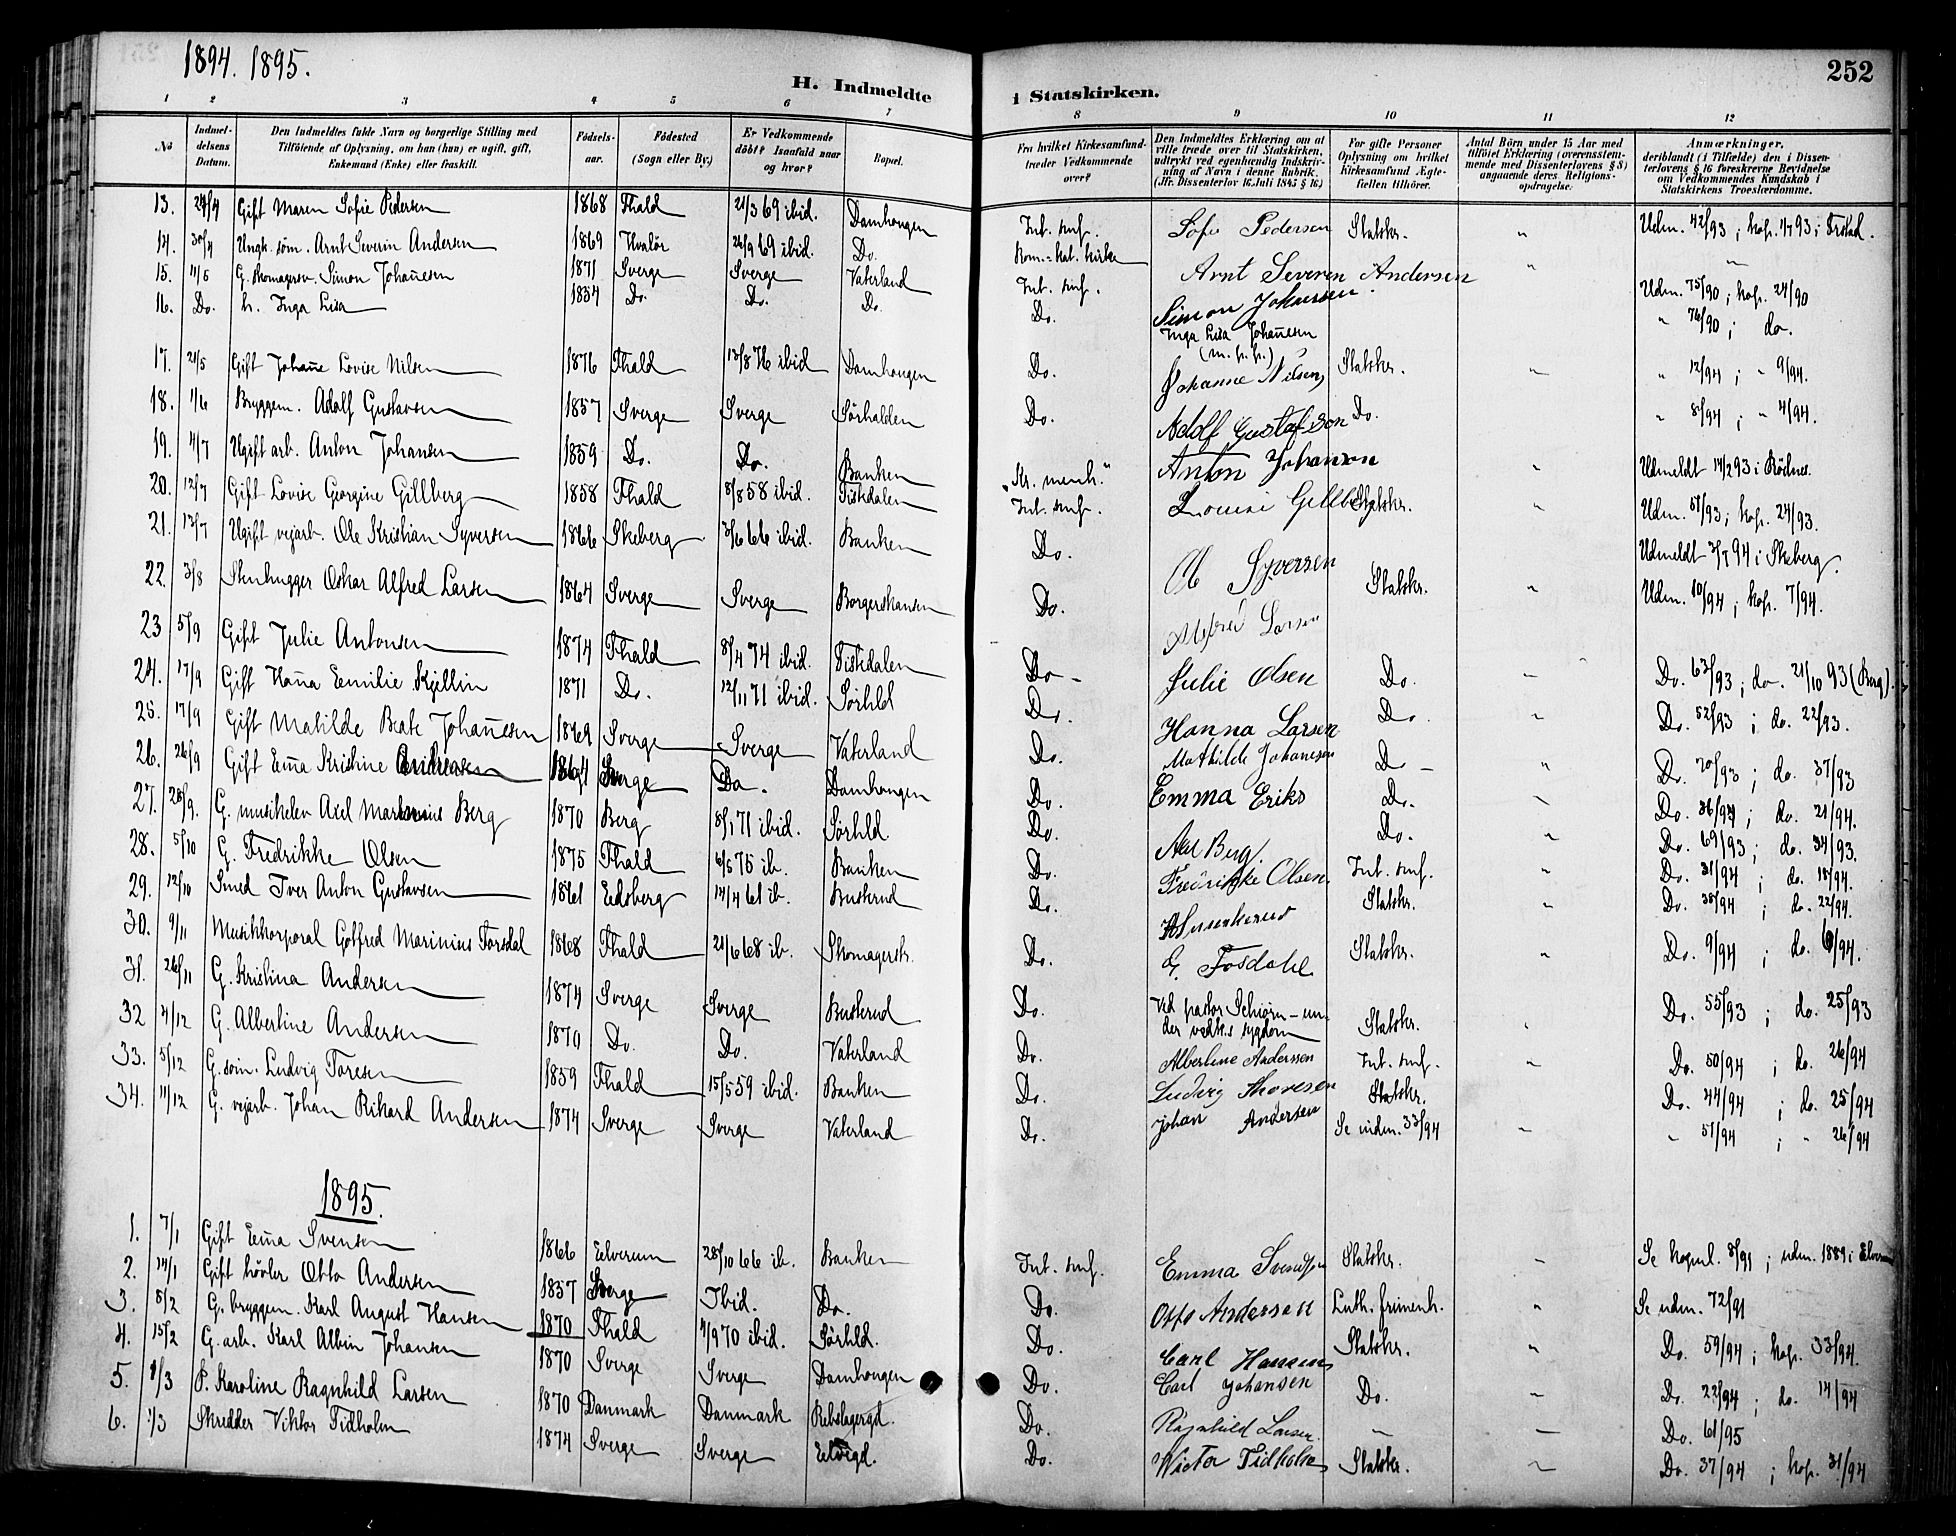 1894. 1895.
252
H. Indmeldte i Statskirken.
1 2 3 4 5 6 7 8 9 10 11 12
No
Indmeldelsens Datum.
Den Indmeldtes fulde Navn og borgerlige Stilling med Tilföiende af Oplysning, om han (hun) er ugift, gift, Enkemand (Enke) eller fraskilt.
Födselsaar.
Födested (Sogn eller By.)
Er Vedkommende döbt? Isaafald naar og hvor?
Bopæl.
Fra hvilket Kirkesamfund træder Vedkommende over?
Den Indmeldtes Erklæring om at ville træde over til Statskirken, udtrykt ved egenhændig Indskrivning af Navn i denne Rubrik. (Jfr. Dissenterlov 16 Juli 1845 § 16.)
For gifte Personer Oplysning om hvilket Kirkesamfund Ægtefællen tilhörer.
Antal Börn under 15 Aar med tilföiet Erklæring (overensstemmende med Dissenterlovens § 8) angaaende deres Religionsopdragelse.
Anmærkninger, deriblandt (i Tilfælde) den i Dissenterlovens § 16 foreskrevne Bevidnelse om Vedkommendes Kundskab i Statskirkens Troeslærdomme.
13. 24/4 Gift Maren Sofie Pedersen 1868 Fhald 21/3 69 ibid. Damhaugen Int. smf. Sofie Pedersen Statskr. " Udm. 42/93; kop. 1/7 93 i
14. 30/4 Ungk. söm. Arnt Severin Andersen 1869 Hvalör 26/9 69 ibid. Do. Rom.-kat. kirke Arnt Severin Andersen "
15. 11/5 G. skomagersv. Simon Johan̄esen 1871 Sverge Sverge Vaterland Int. smf. Simon Johansen Udm. 75/90; kop. 24/90
16. Do. h. Inga Lisa 1834 Do. Do. Do. Do. Inga Lisa Johan̄esen (m. p. p.) " 76/90; do.
17. 21/5 Gift Johan̄e Lovise Nilsen 1876 Fhald 13/8 76 ibid Damhaugen Do. Johanne Nilsen Statskr. " " 12/94; " 9/94.
18. 1/6 Bryggem. Adolf Gustavsen 1857 Sverge Sverge Sörhalden Do. Adolf Gustafson Do. " 8/94; " 4/94.
19. 4/7 Ugift arb. Anton Johansen 1859 Do. Do. Banken "Kr. menh." Anton Johanson " Udmeldt 14/2 93 i Rödnes.
20. 12/7 Gift Lovise Georgine Gillberg 1858 Fhald 8/8 58 ibid. Tistedalen Int. smf. Lovise Gillberg Statskr. " Udm. 51/93; kop. 24/93.
21. 13/7 Ugift vejarb. Ole Kristian Syversen 1866 Skeberg 3/6 66 ibid. Banken Do. Ole Syversen Udmeldt 3/7 94 i Skeberg.
22. 3/8 Stenhugger Oskar Alfred Larsen 1864 Sverge Sverge Borgerskansen Do. Alfred Larsen Statskr. " Udm. 10/94; kop. 7/94.
23 5/9 Gift Julie Antonsen 1874 Fhald 8/4 74 ibid. Tistedalen Do - Julie Olsen Do. " Do. 63/93; do. 21/10 93 (Berg).
24. 17/9 Gift Han̄a Emilie Kjellin 1871 Do. 12/11 71 ibid. Sörhld Do. Hanna Larsen Do. " Do. 52/93; do. 22/93.
25. 17/9 Gift Matilde Beate Johan̄esen 1869 Sverge Sverge Vaterland Do. Mathilde Johanesen Do - " Do. 70/93; do. 37/93
26. 26/9 Gift Em̄a Kristine 1864 Sverge Do. Damhaugen Do. Emma Eriks Do. " Do. 36/94; do. 21/94.
27. 28/9. G. musikelev Axel Martinius Berg 1870 Berg 8/1 71 ibid. Sörhld. Do. Axel Berg. Do. " Do. 69/93; do. 34/93.
28. 5/10 G. Fredrikke Olsen 1875 Fhald 6/5 75 ib. Banken Do. Fredrikke Olsen. Int. smf. " Do. 31/94; do. 18/94.
29. 12/10 Smed Iver Anton Gustavsen 1861 Eidsberg 14/4 61 ib. Busterud Do. Statskr. " Do. 38/94; do. 22/94.
30. 9/11 Musikkorporal Gotfred Marinius Forsdal 1868 Fhald 21/6 68 ib. Skomagerstr. Do. G. Fosdahl Statskr. " Do. 9/94; do. 6/94.
31. 26/11 G. Kristina Andersen 1874 Sverge Sverge Busterud Do. Ved pastor Schiörn - under vedk.s sygdom Statskr. " Do. 55/93; do. 25/93
32 4/12 G. Albertine Andersen 1870 Do. Do. Vaterland Do. Albertine Anderssen Int. smf. " Do. 50/94; do. 26/94
33. 5/12 G. söm. Ludvig Toresen 1859 Fhald 15/5 59 ibid. Banken Do. Ludvig Thoresen Statskr. Do. 44/94; do. 25/94
34. 11/12 G. vejarb. Johan Rikard Andersen 1874 Sverge Sverge Vaterland Do. Johan Andersen Se indm. 33/94 " " 51/94; " 26/94
1895.
1. 7/1 Gift Em̄a Svensen 1866 Elverum 28/10 66 ib. Banken Int. smf. Emma Svendsen Statskr. " Se kopul. 8/91; udm. 1889 i Elverum
2. 14/1 Gift hövler Otto Andersen 1857 Sverge Ibid. Do. Do. Otto Anderson Luth. frimenh. " Se udm. 72/91
3. 5/2 G. bryggem. Karl August Hansen 1870 Fhald 4/9 70 ibid. Sörhld. Do. Carl Hansen Statskr. " Do. 59/94; kop. 33/94.
4. 15/2 G. arb. Karl Albin Johansen 1870 Sverge Sverge Damhaugen Do. Carl Johansen Do. " Do. 22/94; do. 14/94
5. 1/3 P. Karoline Ragnhild Larsen 1870 Danmark Danmark Rebslagergd. Do. Ragnhild Larsen. — — Do. 61/95
6. 1/3 Skredder Viktor Tidholm 1874 Sverge Sverge Do. Victor Tidholm Statskr. " Do. 37/94; kop. 31/94